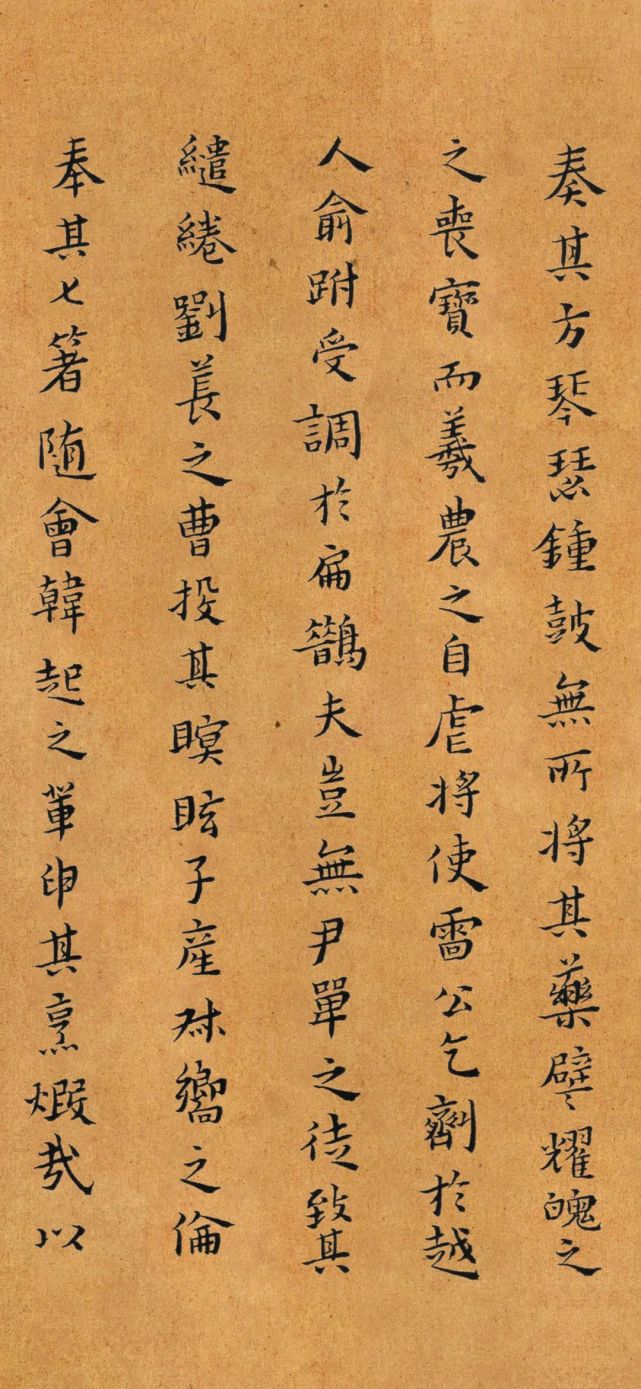 奏其方琴瑟鍾鼓無所將其藥譬耀魄之
之喪寶而羲農之自虐將使雷公乞劑於越
人俞跗受調於扁鵲夫豈無尹單之徒致其
繾綣劉萇之曹投其瞑眩子產叔嚮之倫
奉其匕箸随會韓起之輩申其烹煆哉以